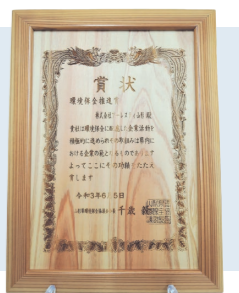 賞状
環境保全推進賞
株式会社 山形 殿
貴社は環境保全に した企業活動を
積極的に進められその取組みは県内に
おける企業の範となるものであります
よってここにその功績をたたえ
賞します
令和3年6月5日
山形県環境保全協議会 会長 千歳